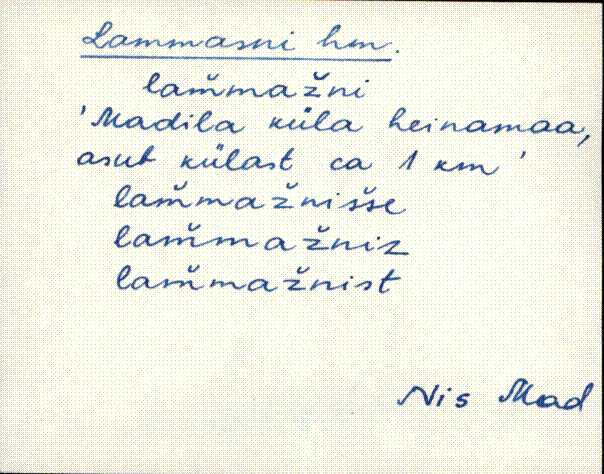 Lammasni hm.
lam̆mažni
'Madila küla heinamaa,
asub külast ca 1 km'
lam̆mažnišše
lam̆mažniz
lam̆mažnist
Nis Mad